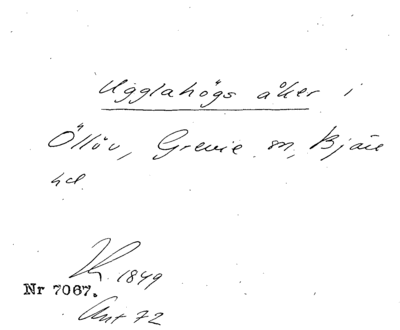 Ugglahögs åker i
Öllöv, Grevie sn, Bjäre
hd
1849
Nr 7067.
Ant 72